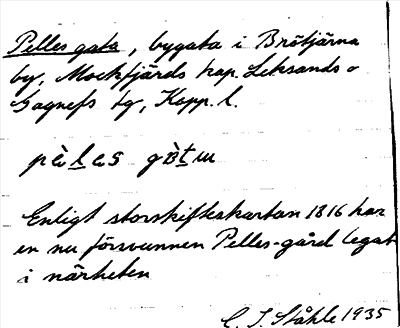 Pelles gata, bygata i Brötjärna
by, Mockfjärds kap. Leksands o
Gagnefs tg, Kopp. l.
pèlas gàtu
Enligt storskifteskartan 1816 har
en nu försvunnen Pelles-gård legat
i närheten
C. I. Ståhle 1935